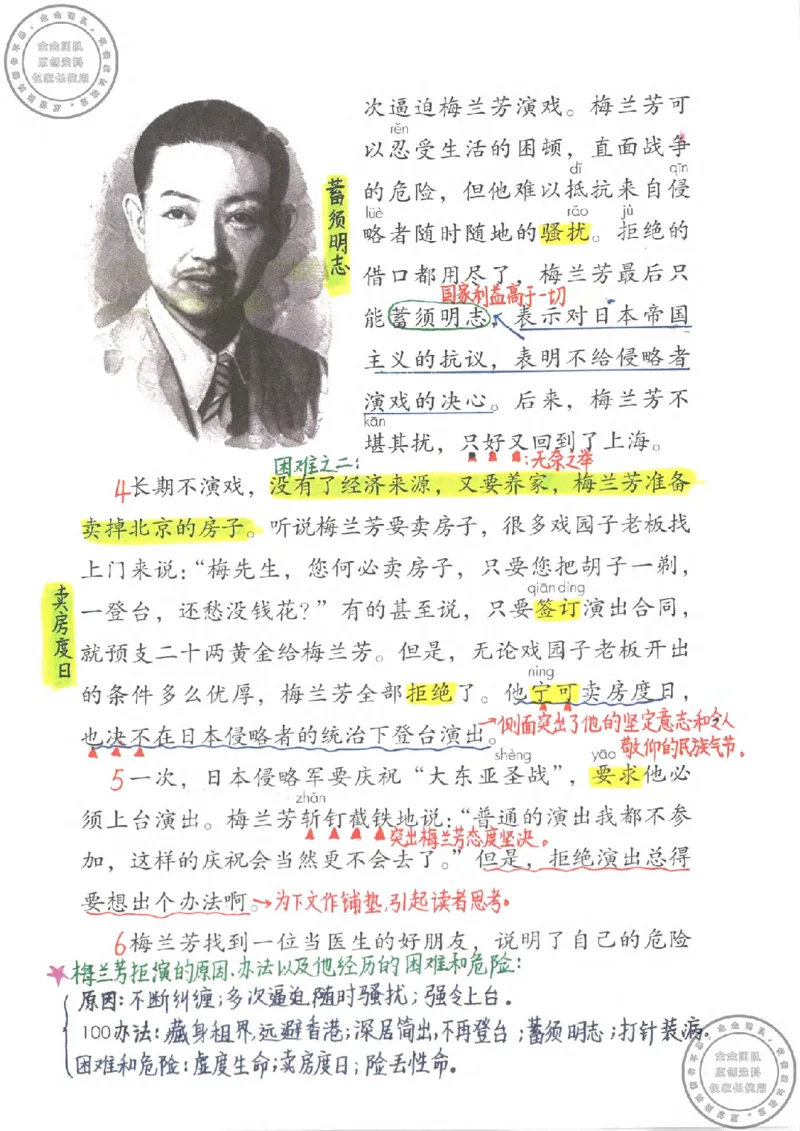 金金团队
原创资料
仅家长使用
次逼迫梅兰芳演戏。梅兰芳可
rěn
以忍受生活的困顿，直面战争
dǐ qīn
的危险，但他难以抵抗来自侵
lüè rǎo jù
略者随时随地的骚扰。拒绝的
借口都用尽了，梅兰芳最后只
国家利益高于一切
能蓄须明志，表示对日本帝国
主义的抗议，表明不给侵略者
演戏的决心。后来，梅兰芳不
kān
堪其扰，只好又回到了上海。
蓄须明志
困难之二：
：无奈之举
4长期不演戏，没有了经济来源，又要养家，梅兰芳准备
卖掉北京的房子。听说梅兰芳要卖房子，很多戏园子老板找
上门来说：“梅先生，您何必卖房子，只要您把胡子一剃，
qiān dìng
一登台，还愁没钱花？”有的甚至说，只要签订演出合同，
就预支二十两黄金给梅兰芳。但是，无论戏园子老板开出
nìng
的条件多么优厚，梅兰芳全部拒绝了。他宁可卖房度日，
也决不在日本侵略者的统治下登台演出。
卖房度日
→侧面突出了他的坚定意志和令人
敬仰的民族气节。
shèng yāo
5一次，日本侵略军要庆祝“大东亚圣战”，要求他必
zhǎn
须上台演出。梅兰芳斩钉截铁地说：“普通的演出我都不参
突出梅兰芳态度坚决。
加，这样的庆祝会当然更不会去了。”但是，拒绝演出总得
要想出个办法啊。→为下文作铺垫，引起读者思考。
6梅兰芳找到一位当医生的好朋友，说明了自己的危险
★梅兰芳拒演的原因、办法以及他经历的困难和危险：
原因：不断纠缠；多次逼迫，随时骚扰；强令上台。
100办法：藏身租界，远避香港；深居简出，不再登台；蓄须明志；打针装病。
困难和危险：虚度生命；卖房度日；险丢性命。
金金团队
原创资料
仅家长使用